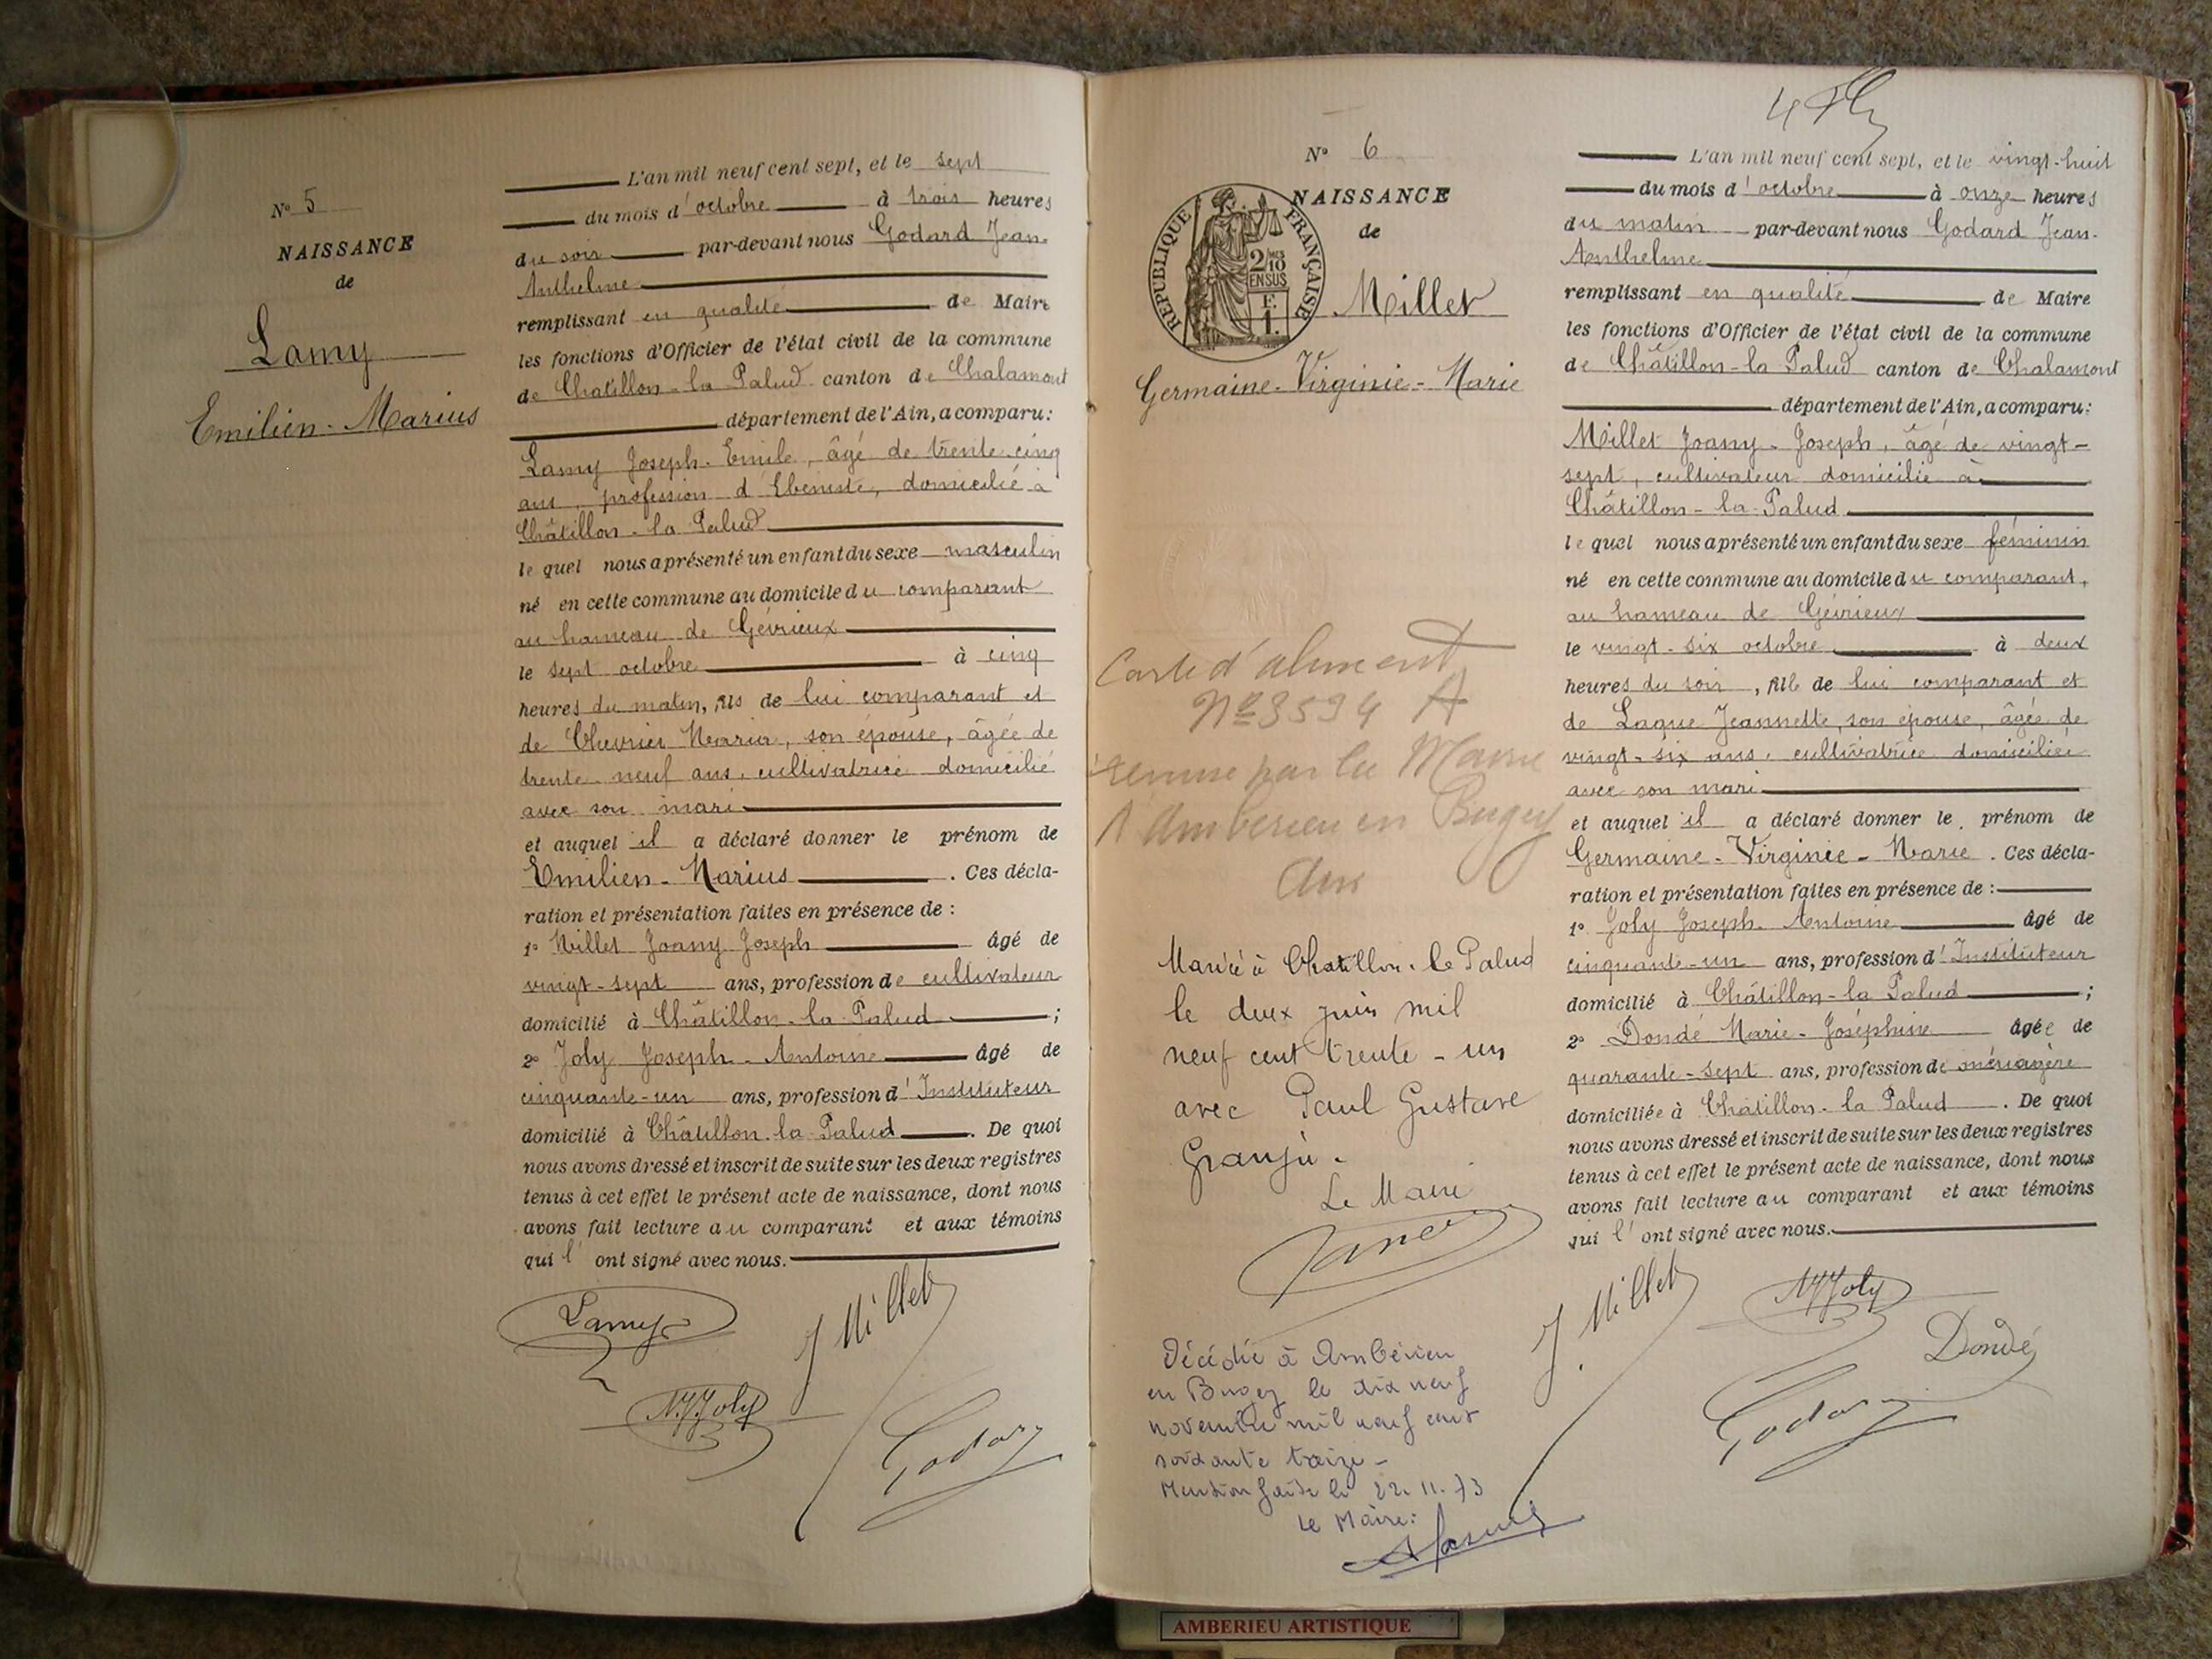 N° 5
NAISSANCE
de
Lamy
Emilien-Marius
L'an mil neuf cent sept, et le sept
du mois d'octobre à trois heures
du soir par-devant nous Godard Jean-
Anthelme
remplissant en qualité de Maire
les fonctions d'Officier de l'état civil de la commune
de Châtillon-la Palud canton de Chalamont
département de l'Ain, a comparu:
Lamy Joseph-Emile, âgé de trente-cinq
ans, profession d'Ebéniste, domicilié à
Châtillon-la-Palud
le quel nous a présenté un enfant du sexe masculin
né en cette commune au domicile du comparant
au hameau de Gévrieux
le sept octobre à cinq
heures du matin, fils de lui comparant et
de Chevrier Maria, son épouse, âgée de
trente-neuf ans, cultivatrice domicilié
avec son mari
et auquel il a déclaré donner le prénom de
Emilien-Marius. Ces décla-
ration et présentation faites en présence de :
1° Millet Joany Joseph âgé de
vingt-sept ans, profession de cultivateur
domicilié à Châtillon-la-Palud ;
2° Joly Joseph-Antoine âgé de
cinquante-un ans, profession d'Instituteur
domicilié à Châtillon-la-Palud. De quoi
nous avons dressé et inscrit de suite sur les deux registres
tenus à cet effet le présent acte de naissance, dont nous
avons fait lecture au comparant et aux témoins
qui l'ont signé avec nous.
Lamy J Millet
Joly Godard
N° 6
NAISSANCE
de
RÉPUBLIQUE FRANÇAISE
2 MES
10
EN SUS
F.
1.
Millet
Germaine-Virginie-Marie
Carte d'aliment
N° 3594 A
remise par la Mairie
d'Ambérieu en Bugey
Ain
Mariée à Chatillon-la Palud
le deux juin mil
neuf cent trente-un
avec Paul Gustave
Le Maire
Décédée à Ambérieu
en Bugey le dix neuf
novembre mil neuf cent
soixante treize-
Mention faite le 22.11.73
Le Maire:
L'an mil neuf cent sept, et le vingt-huit
du mois d'octobre à onze heures
du matin par-devant nous Godard Jean-
Anthelme
remplissant en qualité de Maire
les fonctions d'Officier de l'état civil de la commune
de Châtillon-la Palud canton de Chalamont
département de l'Ain, a comparu:
Millet Joany-Joseph, âgé de vingt-
sept, cultivateur domicilié à
Châtillon-la-Palud
le quel nous a présenté un enfant du sexe féminin
né en cette commune au domicile du comparant,
au hameau de Gévrieux
le vingt-six octobre à deux
heures du soir, fille de lui comparant et
de Lague Jeannette, son épouse, âgée de
vingt-six ans, cultivatrice domiciliée
avec son mari
et auquel il a déclaré donner le prénom de
Germaine-Virginie-Marie. Ces décla-
ration et présentation faites en présence de :
1° Joly Joseph-Antoine âgé de
cinquante-un ans, profession d'Instituteur
domicilié à Châtillon-la Palud ;
2° Dondé Marie-Joséphine âgée de
quarante-sept ans, profession de ménagère
domiciliée à Châtillon-la Palud. De quoi
nous avons dressé et inscrit de suite sur les deux registres
tenus à cet effet le présent acte de naissance, dont nous
avons fait lecture au comparant et aux témoins
qui l'ont signé avec nous.
J Millet Joly
Dondé
Godard
AMBERIEU ARTISTIQUE